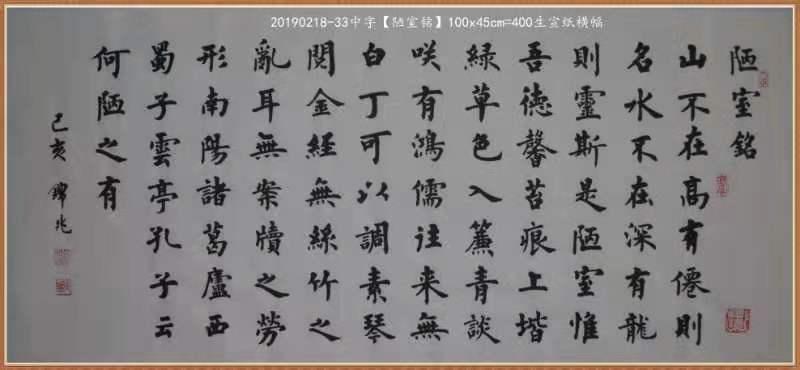 20190218-33中字【陋室铭】100x45cm=400生宣纸横幅
陋室銘
山不在高有僊則
名水不在深有龍
則靈斯是陋室惟
吾德馨苔痕上堦
緑草色入簾青談
咲有鴻儒往来無
白丁可以調素琴
閱金經無絲竹之
亂耳無案牘之勞
形南陽諸葛廬西
蜀子雲亭孔子云
何陋之有
己亥